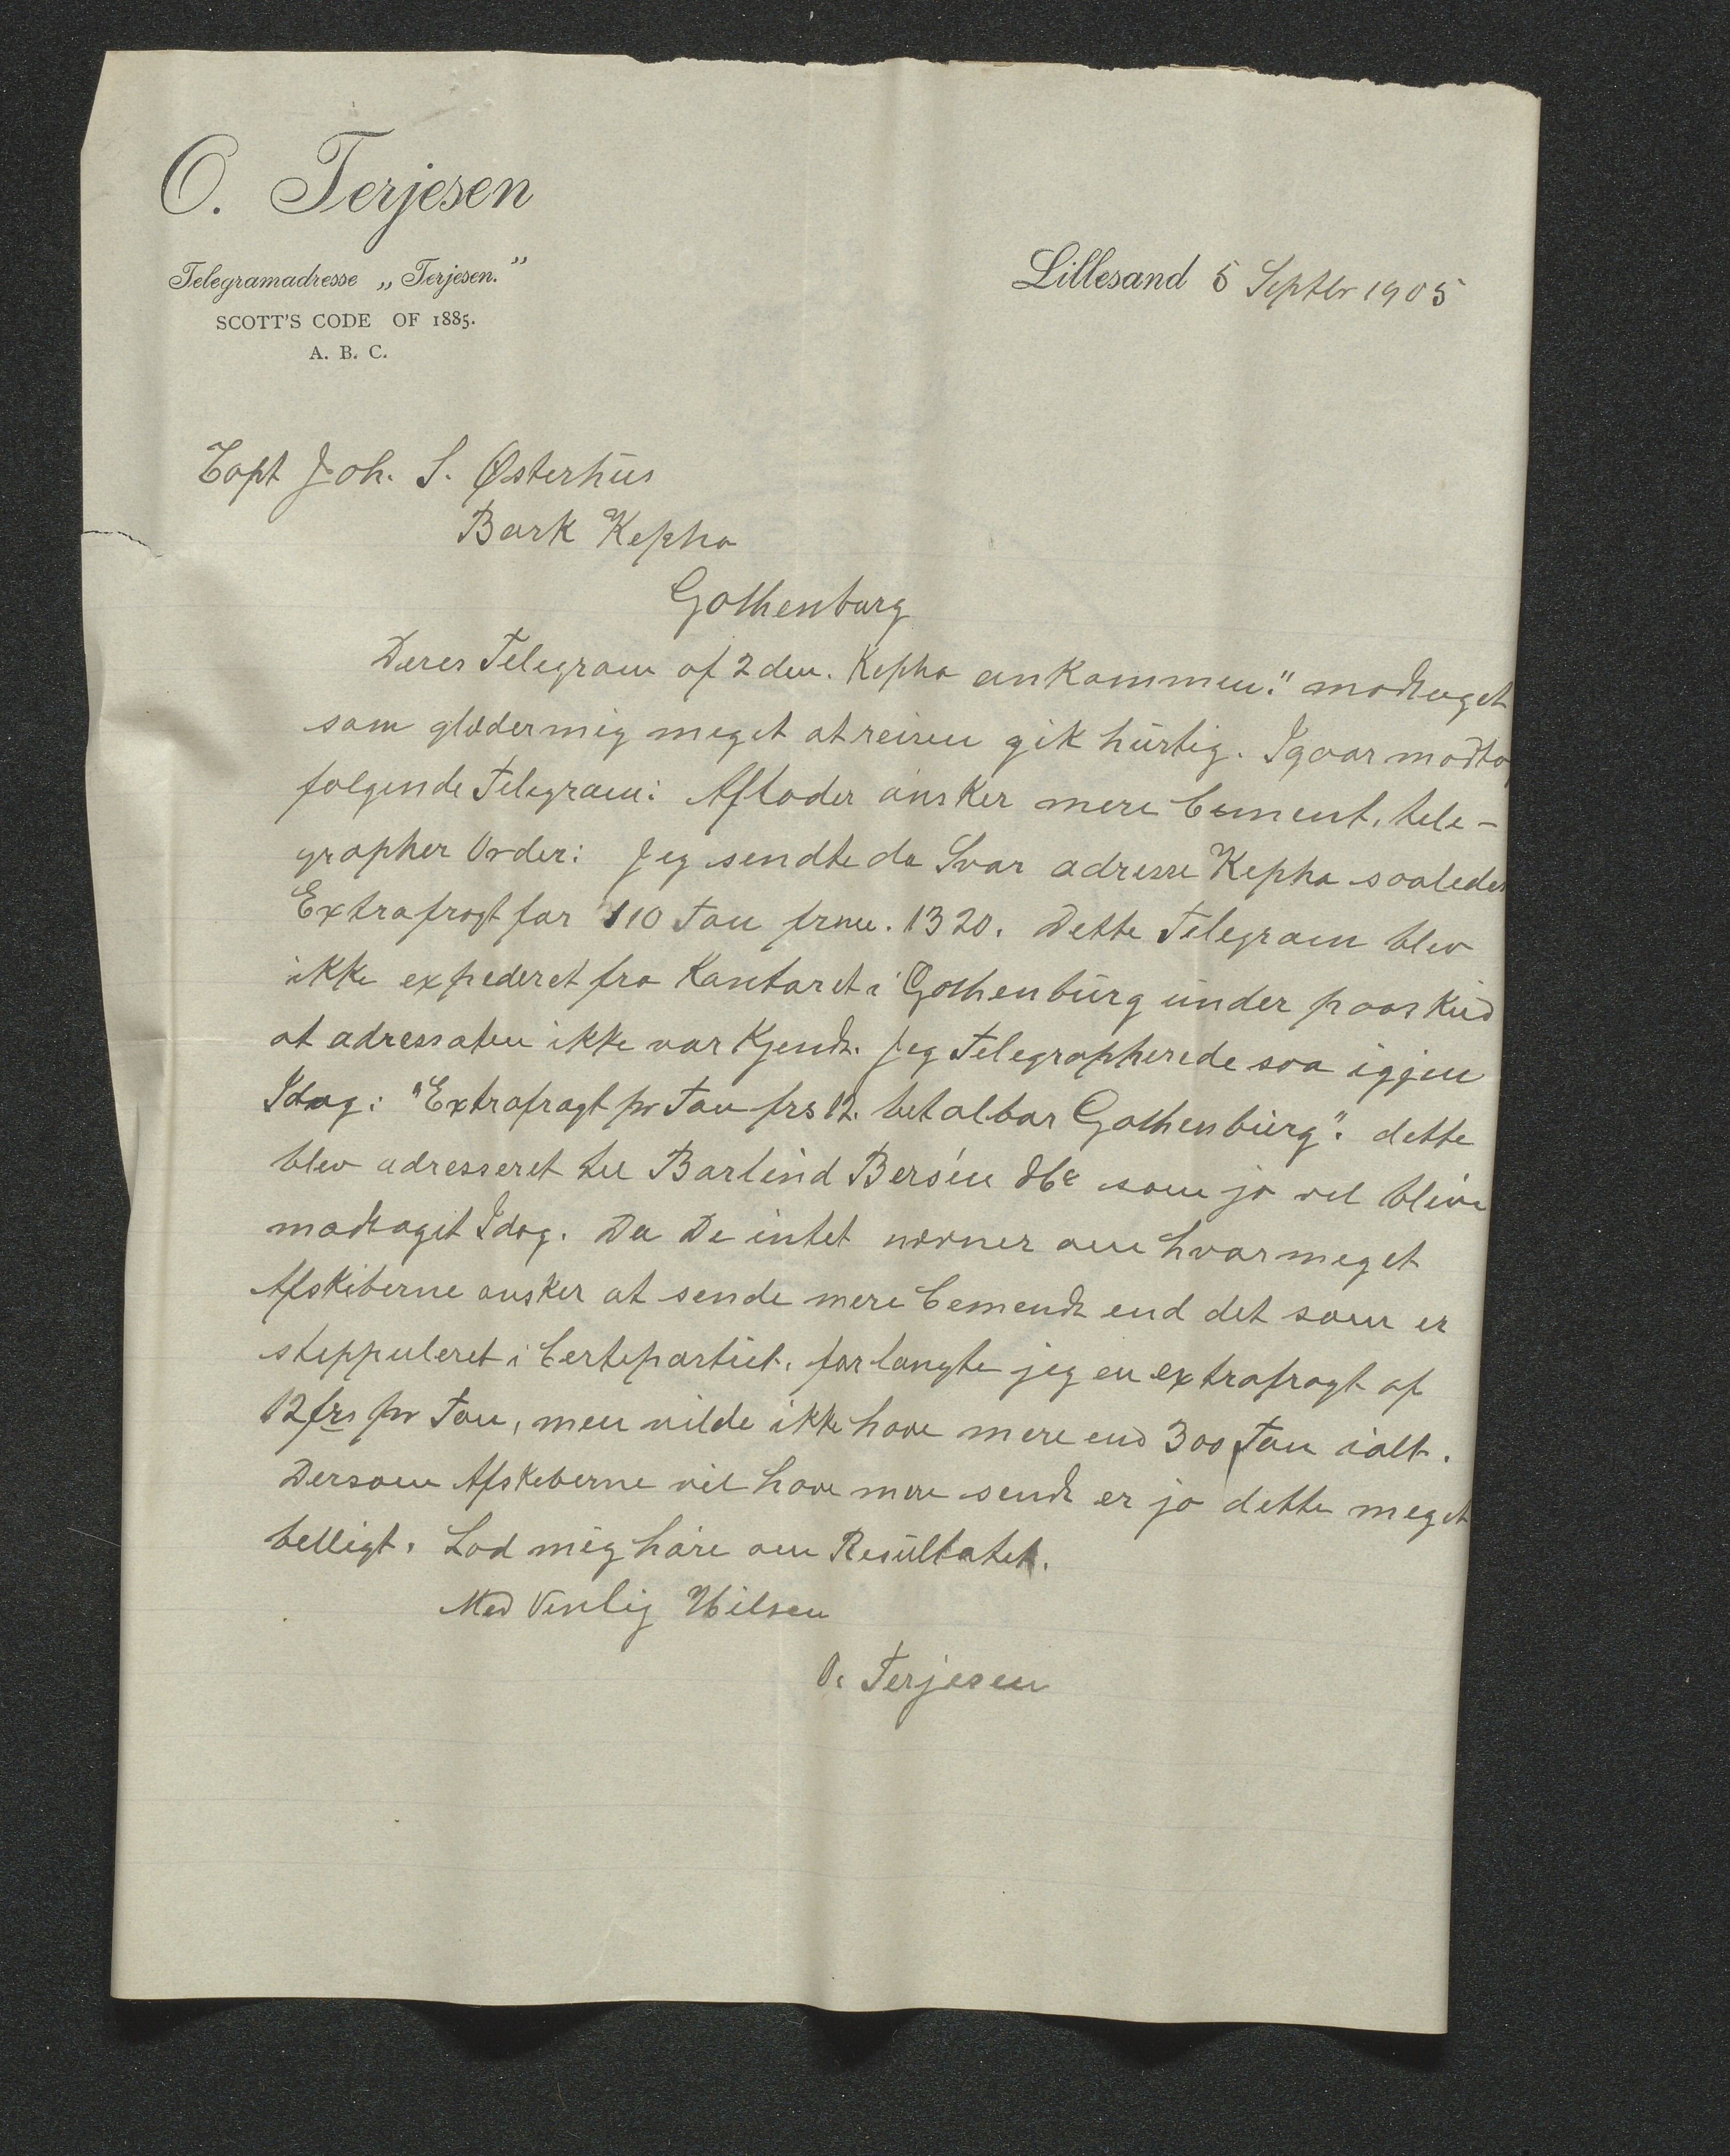 O. Terjesen
Telegramadresse „Terjesen."
SCOTT'S CODE OF 1885.
A. B. C.
Lillesand 5 Septbr 1905
Capt Joh. S. Østerhus
Bark Kepha
Gothenburg
Deres Telegram af 2den. Kepha ankommen." modtaget
som glæder mig meget at reisen gik hurtig. Igaar modtog
følgende Telegram: Aflader ønsker mere Cement, tele-
grapher Order: Jeg sendte da Svar adresse Kepha saaledes
Extrafragt for 110 Ton frnc. 1320. Dette Telegram blev
ikke expederet fra Kontoret i Gothenburg under paaskud
at adressaten ikke var Kjendt. Jeg Telegrapherede saa igjen
Idag: "Extrafragt pr Ton frs 12. betalbar Gothenburg". dette
blev adresseret til Barlind Bersén &Co som jo vel blive
modtaget Idag. Da De intet nævner om hvor meget
Afskiberne ønsker at sende mere Cemendt end det som er
steppuleret i Certepartiet, forlangte jeg en extrafragt af
12 frs pr Ton, men vilde ikke have mere end 300 Ton ialt.
Dersom Afskeberne vil have mere sendt er jo dette meget
belligt. Lad mig høre om Resultatet.
Med Venlig Hilsen
O. Terjesen